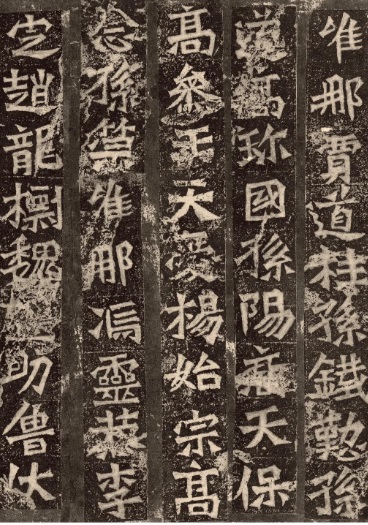 唯那賈道桂孫鐵懃孫
高珎國孫陽高天保
高參王天愛楊始宗高
念孫榮唯那馮靈恭李
定趙龍標魏助魯伏